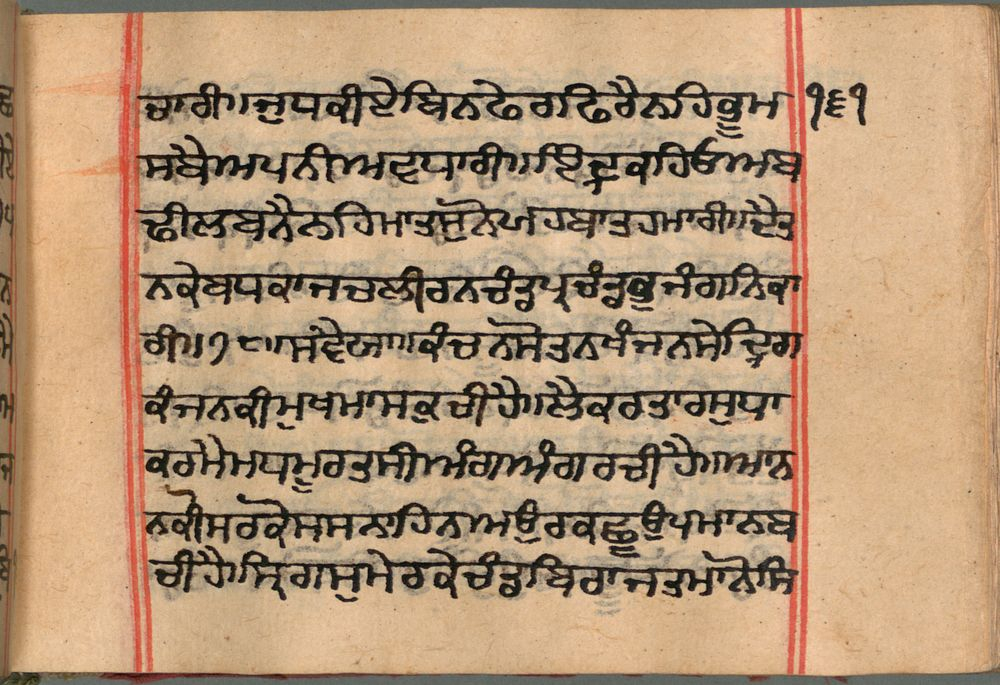 ਚਾਰੀ॥ਜੁਧਕੀਏਬਿਨਫੇਰਫਿਰੈਨਹਿਭੂਮ ੧੬੧
ਸਭੈਅਪਨੀਅਵਧਾਰੀ॥ਇੰਦ੍ਰਕਹਿਓਅਬ
ਢੀਲਬਨੈਨਹਿਮਾਤਸੁਨੋਯਹਬਾਤਹਮਾਰੀ॥ਦੈਤ
ਨਕੇਬਧਕਾਜਚਲੀਰਨਚੰਡਪ੍ਰਚੰਡਭੁਜੰਗਨਿਕਾ
ਰੀ॥੧੮॥ਸ੍ਵੈਯਾ॥ਕੰਚਨਸੇਤਨਖੰਜਨਸੇਦ੍ਰਿਗ
ਕੰਜਨਕੀਸੁਖਮਾਸਕੁਚੀਹੈ॥ਲੈਕਰਤਾਰਸੁਧਾ
ਕਰਮੈਮਧਮੂਰਤਸੀਅੰਗਅੰਗਰਚੀਹੈ॥ਆਨ
ਨਕੀਸਰਕੋਸਸਨਾਹਿਨਅਉਰਕਛੂਉਪਮਾਨਬ
ਚੀਹੈ॥ਸ੍ਰਿੰਗਸੁਮੇਰਕੇਚੰਡਬਿਰਾਜਤਮਾਨੋਸਿ